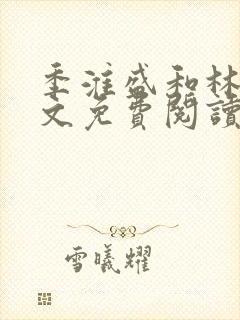 季淮盛和林
文免費閱讀
雪曦耀